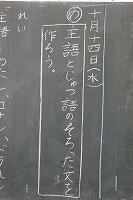 十月十四日(水)
め 主語とじゅつ語のそろった文を
作ろう。
れい